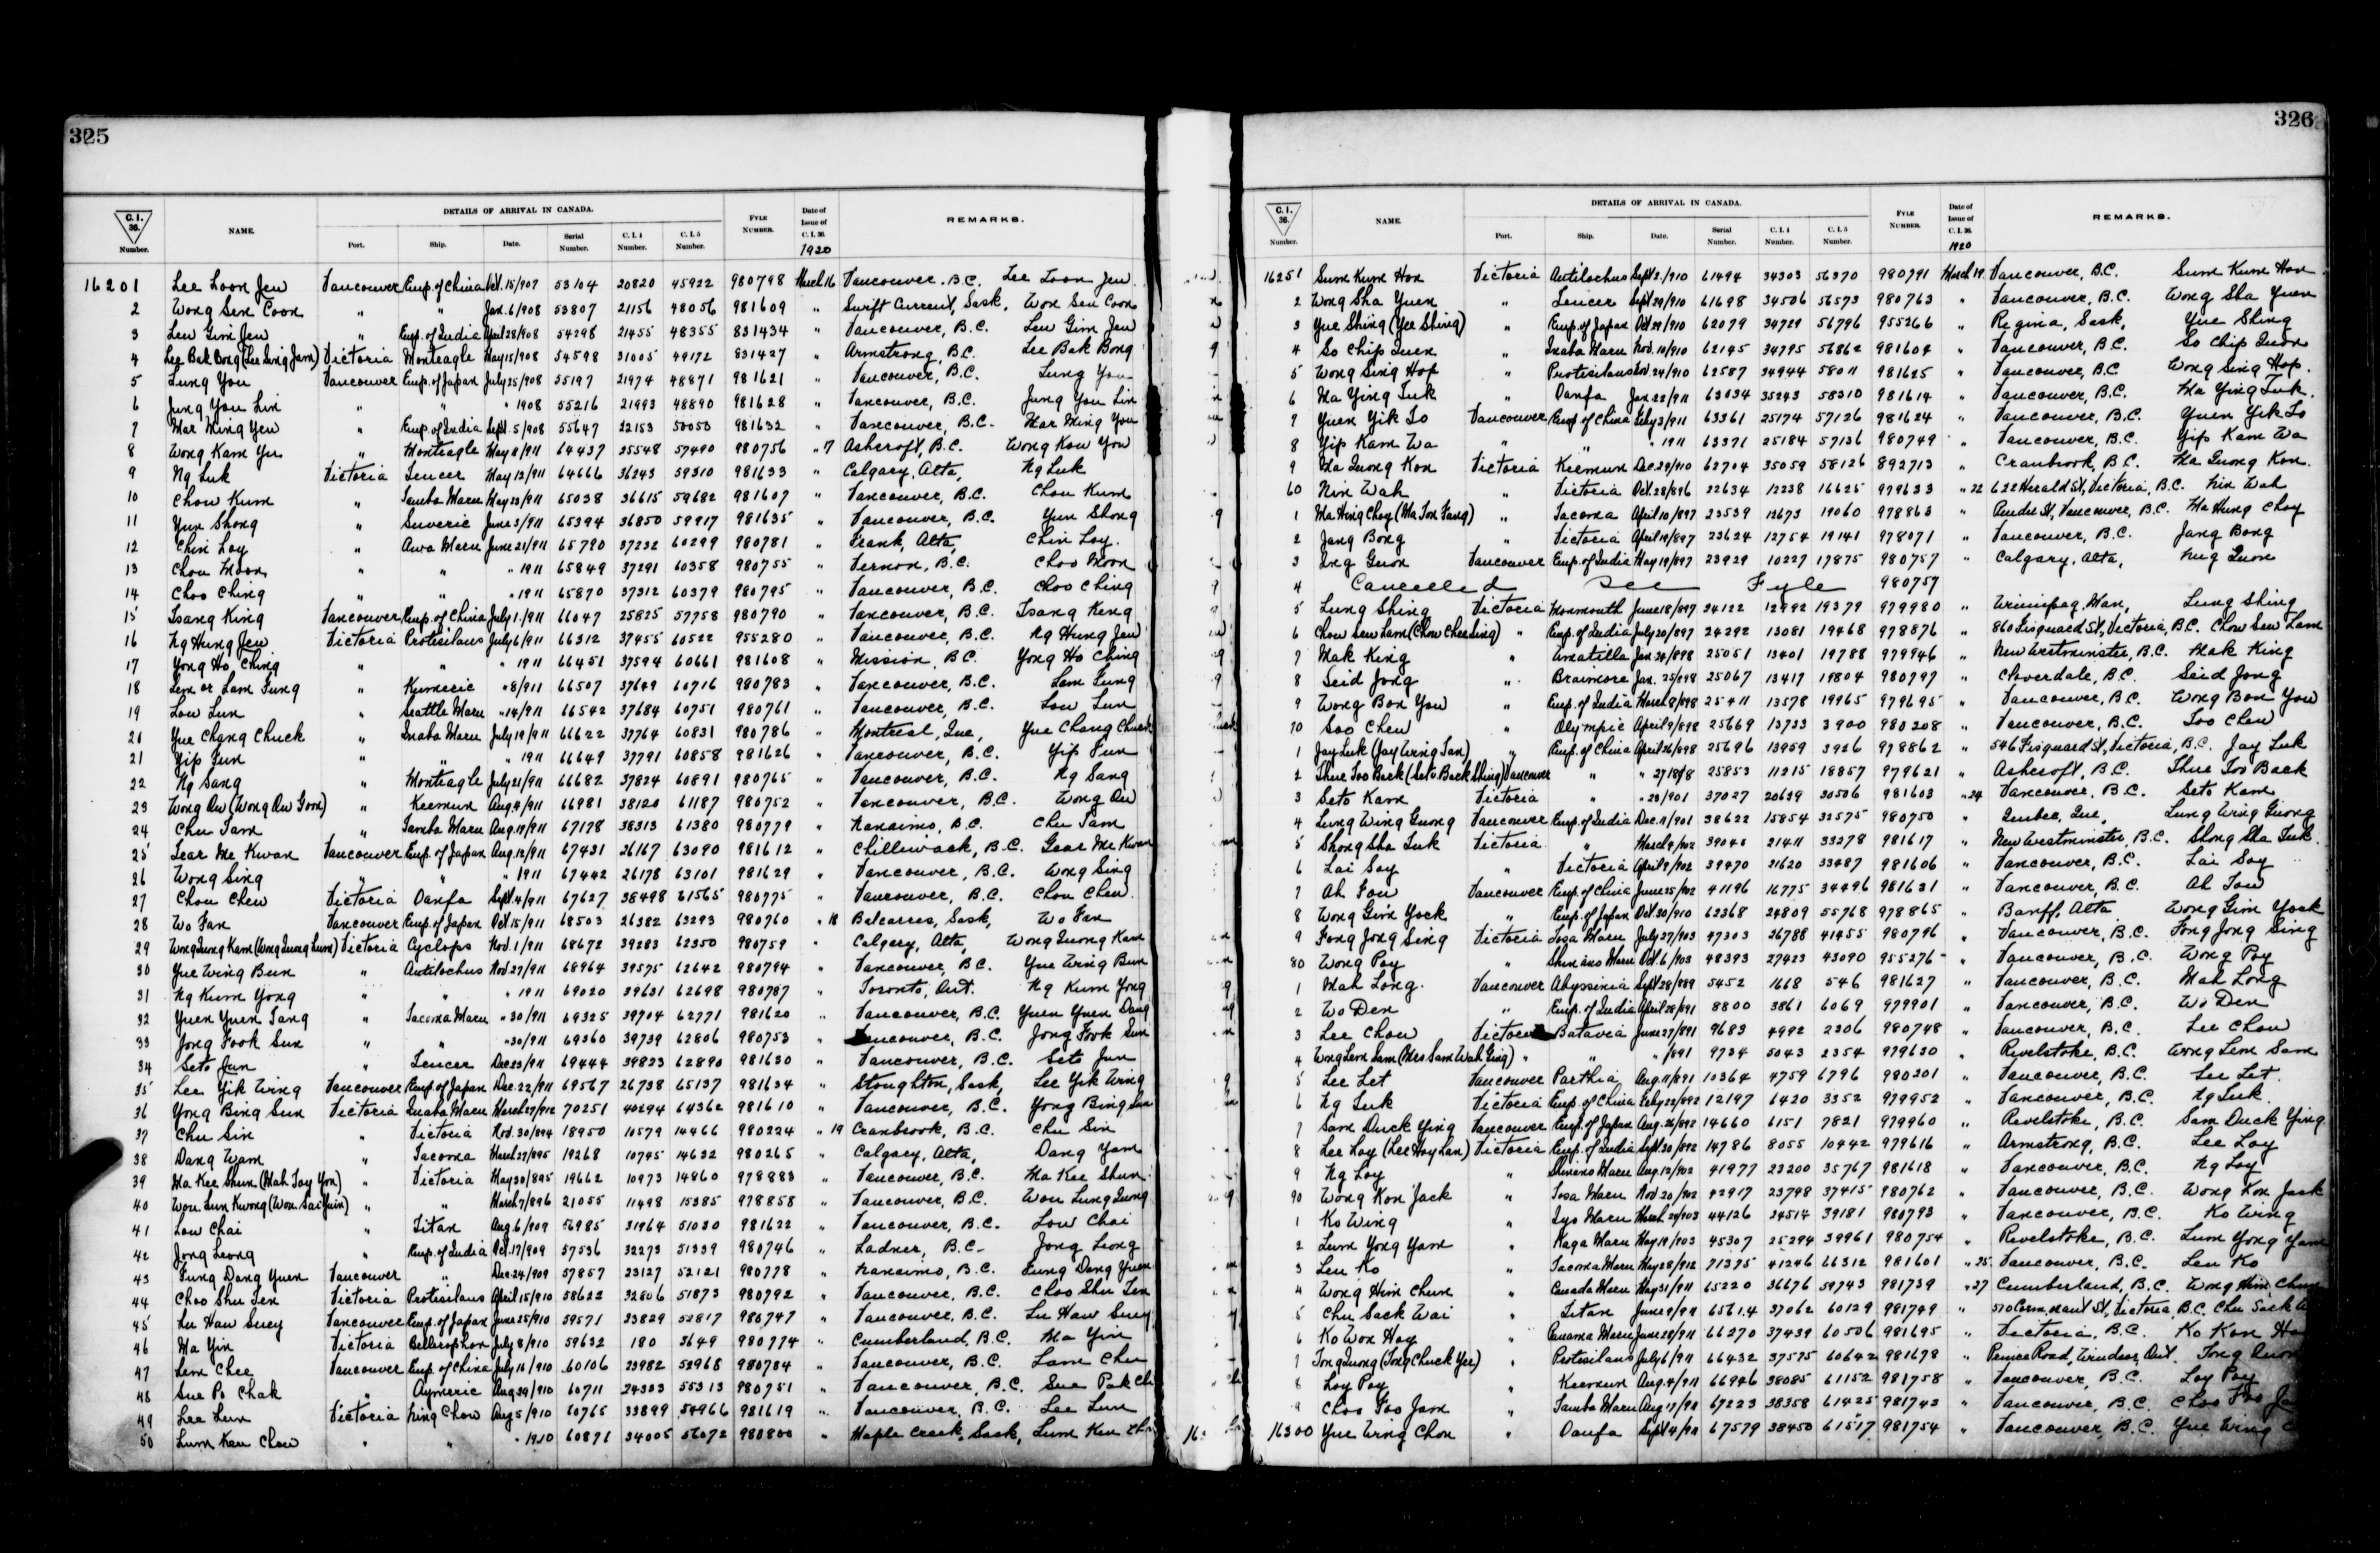 325
C. I. 36. Number. NAME. DETAILS OF ARRIVAL IN CANADA. Port. Ship. Date. Serial Number. C. I. 4 Number. C. I. 5 Number. FYLE NUMBER. Date of Issue of C. I. 36. 1920 REMARKS.
16201 Lee Loon Jew Vancouver Emp. of China Oct. 15/907 53104 20820 45922 980798 March 16 Vancouver, B.C. Lee Loon Jew
2 Wong Sen Coon " " Jan. 6/908 53807 21156 48056 981609 " Swift Current, Sask. Won Sen Coon
3 Lew Gim Jew " Emp. of India April 28/908 54298 21455 48355 831434 " Vancouver, B.C. Lew Gim Jew
4 Lee Bak Bong (Lee Sing Jam) Victoria Monteagle May 15/908 54598 31005 49172 831427 " Armstrong, B.C. Lee Bak Bong
5 Lung You Vancouver Emp. of Japan July 25/908 55197 21974 48871 981621 " Vancouver, B.C. Lung You
6 Jung You Lin " " " 1908 55216 21993 48890 981628 " Vancouver, B.C. Jung You Lin
7 Mar Ming Yew " Emp. of India Sept. 5/908 55647 22153 50050 981632 " Vancouver, B.C. Mar Ming You
8 Wong Kam Yu " Monteagle May 11/911 64437 25548 57490 980756 " 17 Ashcroft, B.C. Wong Kow You
9 Ng Luk Victoria Teucer May 13/911 64666 36243 59310 981633 " Calgary, Alta, Ng Luk
10 Chow Kum " Tamba Maru May 23/911 65038 36615 59682 981607 " Vancouver, B.C. Chou Kum
11 Yun Shong " Suveric June 3/911 65394 36850 59917 981635 " Vancouver, B.C. Yun Shong
12 Chin Loy " Awa Maru June 21/911 65790 37232 60299 980781 " Frank, Alta, Chin Loy.
13 Chou Moon " " " 1911 65849 37291 60358 980755 " Vernon, B.C. Choo Moon
14 Choo Ching " " " 1911 65870 37312 60379 980795 " Vancouver, B.C. Choo Ching
15 Tsang King Vancouver Emp. of China July 1/911 66047 25825 57758 980790 " Vancouver, B.C. Tsang King
16 Ng Hung Jew Victoria Protesilaus July 6/911 66312 37455 60522 955280 " Vancouver, B.C. Ng Hung Jew
17 Yong Ho Ching " " " 1911 66451 37594 60661 981608 " Mission, B.C. Yong Ho Ching
18 Lem or Lam Fung " Kumeric " 8/911 66507 37649 60716 980783 " Vancouver, B.C. Lem Fung
19 Low Lun " Seattle Maru " 14/911 66542 37684 60751 980761 " Vancouver, B.C. Low Lun
20 Yue Chang Chuck " Inaba Maru July 19/911 66622 37764 60831 980786 " Montreal, Que, Yue Chang Chuck
21 Yip Fun " " " 1911 66649 37791 60858 981626 " Vancouver, B.C. Yip Fun
22 Ng Sang " Monteagle July 21/911 66682 37824 60891 980765 " Vancouver, B.C. Ng Sang
23 Wong On (Wong On Gon) " Keemun Aug. 4/911 66981 38120 61187 980752 " Vancouver, B.C. Wong On
24 Chu Tam " Tamba Maru Aug. 19/911 67178 38313 61380 980779 " Nanaimo, B.C. Chu Tam
25 Lear Me Kwan Vancouver Emp. of Japan Aug. 12/911 67431 26167 63090 981612 " Chilliwack, B.C. Gear Me Kwan
26 Wong Sing " " " 1911 67442 26178 63101 981629 " Vancouver, B.C. Wong Sing
27 Chou Chew Victoria Oanfa Sept. 4/911 67627 38498 61565 980775 " Vancouver, B.C. Chou Chew
28 Wo Fan Vancouver Emp. of Japan Oct. 15/911 68503 26382 63293 980760 " 18 Balcarres, Sask, Wo Fan
29 Wong Lung Kam (Wong Quong Lum) Victoria Cyclops Nov. 1/911 68672 39283 62350 980759 " Calgary, Alta, Wong Quong Kam
30 Yue Wing Bun " Antilochus Nov 27/911 68964 39575 62642 980794 " Vancouver, B.C. Yue Wing Bun
31 Ng Kum Yong " " " 1911 69020 39631 62698 980787 " Toronto, Ont. Ng Kum Yong
32 Yuen Yuen Tang " Tacoma Maru " 30/911 69325 39704 62771 981620 " Vancouver, B.C. Yuen Yuen Dang
33 Jong Fook Sun " " " 30/911 69360 39739 62806 980753 " Vancouver, B.C. Jong Fook Sun
34 Seto Jun " Teucer Dec 23/911 69444 39823 62890 981630 " Vancouver, B.C. Seto Jun
35 Lee Yik Wing Vancouver Emp. of Japan Dec. 22/911 69567 26738 65137 981634 " Stoughton, Sask, Lee Yik Wing
36 Yong Bing Sun Victoria Inaba Maru March 27/912 70251 40294 64362 981610 " Vancouver, B.C. Yong Bing Sun
37 Chu Sin " Victoria Nov. 30/894 18950 10579 14466 980224 " 19 Cranbrook, B.C. Chu Sin
38 Dang Wam " Tacoma March 27/895 19268 10745 14632 980265 " Calgary, Alta, Dang Yam
39 Ma Kee Shun (Mah Toy Yon) " Victoria May 30/895 19662 10973 14860 978883 " Vancouver, B.C. Ma Kee Shun
40 Wou Lun Kwong (Wou Sai Yuin) " " March 7/896 21055 11498 15385 978858 " Vancouver, B.C. Wou Lung Qung
41 Low Chai " Titan Aug. 6/909 56985 31964 51030 981622 " Vancouver, B.C. Low Chai
42 Jong Leong " Emp. of India Oct. 17/909 57536 32273 51339 980746 " Ladner, B.C. Jong Leong
43 Fung Dang Yuen Vancouver " Dec 24/909 57857 23127 52121 980778 " Nanaimo, B.C. Fung Dang Yuen
44 Choo Shu Ten Victoria Protesilaus April 15/910 58622 32806 51873 980792 " Vancouver, B.C. Choo Shu Ten
45 Lu Haw Suey Vancouver Emp. of Japan June 25/910 59571 23829 52817 980747 " Vancouver, B.C. Lu Haw Suey
46 Ma Yin Victoria Bellerophon July 8/910 59632 180 3649 980774 " Cumberland, B.C. Ma Yin
47 Lem Chee Vancouver Emp. of China July 16/910 60106 23982 52968 980784 " Vancouver, B.C. Lam Chu
48 Sue Po Chak " Aymeric Aug 29/910 60711 24323 55313 980751 " Vancouver, B.C. Sue Pak Ch
49 Lee Lun Victoria Ning Chow Aug 5/910 60765 33899 54966 981619 " Vancouver, B.C. Lee Lun
50 Lum Kew Chow " " " 1910 60871 34005 56072 980800 " Maple Creek, Sask, Lum Kew Cho
326
C. I. 36. Number. NAME. DETAILS OF ARRIVAL IN CANADA. Port. Ship. Date. Serial Number. C. I. 4 Number. C. I. 5 Number. FYLE NUMBER. Date of Issue of C. I. 36. 1920 REMARKS.
16251 Sum Kum Hon Victoria Antilochus Sept 2/910 61494 34303 56370 980791 March 19 Vancouver, B.C. Sum Kum Hon
2 Wong Sha Yuen " Teucer Sept 29/910 61698 34506 56573 980763 " Vancouver, B.C. Wong Sha Yuen
3 Yue Shing (Yee Shing) " Emp. of Japan Oct 29/910 62079 34729 56796 955266 " Regina, Sask, Yue Shing
4 So Chip Quen " Inaba Maru Nov. 10/910 62145 34795 56862 981604 " Vancouver, B.C. So Chip Quon
5 Wong Sing Hop " Protesilaus Nov. 24/910 62587 34944 58011 981625 " Vancouver, B.C Wong Sing Hop.
6 Ma Ying Tuk " Oanfa Jan 22/911 63034 35243 58310 981614 " Vancouver, B.C. Ma Ying Tuk.
7 Yuen Yik To Vancouver Emp of China Feby 3/911 63361 25174 57126 981624 " Vancouver, B.C. Yuen Yik To
8 Yip Kam Wa " " " 1911 63371 25184 57136 980749 " Vancouver, B.C. Yip Kam Wa
9 Ma Quong Kon Victoria Keemun Dec. 29/910 62704 35059 58126 892713 " Cranbrook, B.C. Ma Quong Kon.
60 Nin Wah " Victoria Oct. 28/896 22634 12238 16625 979633 " 22 622 Herald St, Victoria, B.C. Nin Wah
1 Ma Hing Choy (Ma Ton Fang) " Tacoma April 10/897 23539 12673 19060 978863 " Vancouver, B.C. Ma Hung Choy
2 Jang Bong " Victoria April 19/897 23624 12754 19141 978071 " Vancouver, B.C. Jang Bong
3 Ing Guon Vancouver Emp. of India May 19/897 23929 10227 17875 980757 " Calgary, Alta, Nug Quon
4 Cancelled See Fyle 980757
5 Lung Shing Victoria Monmouth June 18/897 24122 12992 19379 979980 " Winnipeg, Man, Lung Shing
6 Chow Sew Lam (Chow Chee Sing) " Emp. of India July 20/897 24292 13081 19468 978876 " 860 Fisguard St, Victoria, B.C. Chow Sew Lam
7 Mak King " Umatilla Jan 24/898 25051 13401 19788 979946 " New Westminster, B.C. Mak King
8 Seid Jong " Braemore Jan. 25/898 25067 13417 19804 980797 " Cloverdale, B.C. Seid Jong
9 Wong Bon You " Emp. of India March 8/898 25411 13578 19965 979695 " Vancouver, B.C. Wong Bon You
70 Soo Chew " Olympic April 9/898 25669 13733 3900 980208 " Vancouver, B.C. Soo Chew
1 Jay Luk (Jay Wing Tan) " Emp. of China April 26/898 25696 13959 3926 978862 " 546 Fisguard St, Victoria, B.C. Jay Luk
2 Thue Too Back (Seto Back Shing) Vancouver " " 27 18/8 25853 11215 18857 979621 " Ashcroft, B.C. Thue Too Back
3 Seto Kam Victoria " " 23/901 37027 20639 30506 981603 " 24 Vancouver, B.C. Seto Kam
4 Lung Wing Guong Vancouver Emp. of India Dec. 11/901 38622 15854 32575 980750 " Quebec, Que, Lung Wing Guong
5 Shong Sha Tuk Victoria " March 4/902 39040 21411 33278 981617 " New Westminster, B.C. Shong Sha Tuk.
6 Lai Soy " Victoria April 9/902 39470 21620 33487 981606 " Vancouver, B.C. Lai Soy
7 Ah Fou Vancouver Emp. of China June 25/902 41196 16775 34496 981631 " Vancouver, B.C. Ah Fou
8 Wong Gim Yock " Emp. of Japan Oct. 30/910 62368 24809 55768 978865 " Banff, Alta Wong Gim Yock
9 Fong Jong Sing Victoria Tosa Maru July 27/903 47303 26788 41455 980796 " Vancouver, B.C. Fong Jong Sing
80 Wong Poy " Shinano Maru Oct. 6/903 48393 27423 43090 955276 " Vancouver, B.C. Wong Poy
1 Mah Long. Vancouver Abyssinia Sept 28/889 5452 1668 546 981627 " Vancouver, B.C. Mah Long
2 Wo Den " Emp. of India April 28/891 8800 3861 6069 979901 " Vancouver, B.C. Wo Den
3 Lee Chow Victoria Batavia June 27/891 9683 4992 2306 980748 " Vancouver, B.C. Lee Chow
4 Wong Lem Sam (Mrs Sam Wah Ging) " " " /891 9734 5043 2354 979630 " Revelstoke, B.C. Wong Lem Sam
5 Lee Let Vancouver Parthia Aug. 11/891 10364 4759 6796 980201 " Vancouver, B.C. Lee Let.
6 Ng Luk Victoria Emp. of China Feby 22/892 12197 6420 3352 979952 " Vancouver, B.C. Ng Luk.
7 Sam Duck Ying Vancouver Emp. of Japan Aug. 26/892 14660 6151 7821 979960 " Revelstoke, B.C. Sam Duck Ying
8 Lee Loy (Lee Hoy Lan) Victoria Emp. of India Sept. 30/892 14786 8055 10442 979616 " Armstrong, B.C. Lee Loy
9 Ng Loy " Maru Aug. 12/902 41977 23200 35767 981618 " Vancouver, B.C. Ng Loy
90 Wong Kon Jack " Tosa Maru Nov 20/902 42917 23748 37415 980762 " Vancouver, B.C. Wong Kon Jack
1 Ko Wing " Iyo Maru March 24/903 44126 24514 39181 980793 " Vancouver, B.C. Ko Wing
2 Lum Yong Yam " Kaga Maru May 19/903 45307 25294 39961 980754 " Revelstoke, B.C. Lum Yong Yam
3 Leu Ko " Tacoma Maru May 28/912 71375 41246 66312 981601 " 25 Vancouver, B.C. Leu Ko
4 Wong Him Chun " Canada Maru May 31/911 65220 36676 59743 981739 " 27 Cumberland, B.C. Wong Him Chun
5 Chu Sack Wai " Titan June 9/911 65614 37062 60129 981749 " 570 Cormorant St, Victoria, B.C. Chu Sack W
6 Ko Won Hoy " Panama Maru June 28/911 66270 37439 60506 981695 " Victoria, B.C. Ko Kon Ho
7 Tong Quong (Tong Chuck Yee) " Protesilaus July 6/911 66432 37575 60642 981678 " Road, Windsor, Ont. Tong Quon
8 Loy Poy " Keemun Aug. 4/911 66946 38085 61152 981758 " Vancouver, B.C. Loy Poy
9 Choo Foo Jam " Tamba Maru Aug 17/911 67223 38358 61425 981743 " Vancouver, B.C. Choo Foo Ja
16300 Yue Wing Chon " Oanfa Sept 4/911 67579 38450 61517 981754 " Vancouver, B.C. Yue Wing C